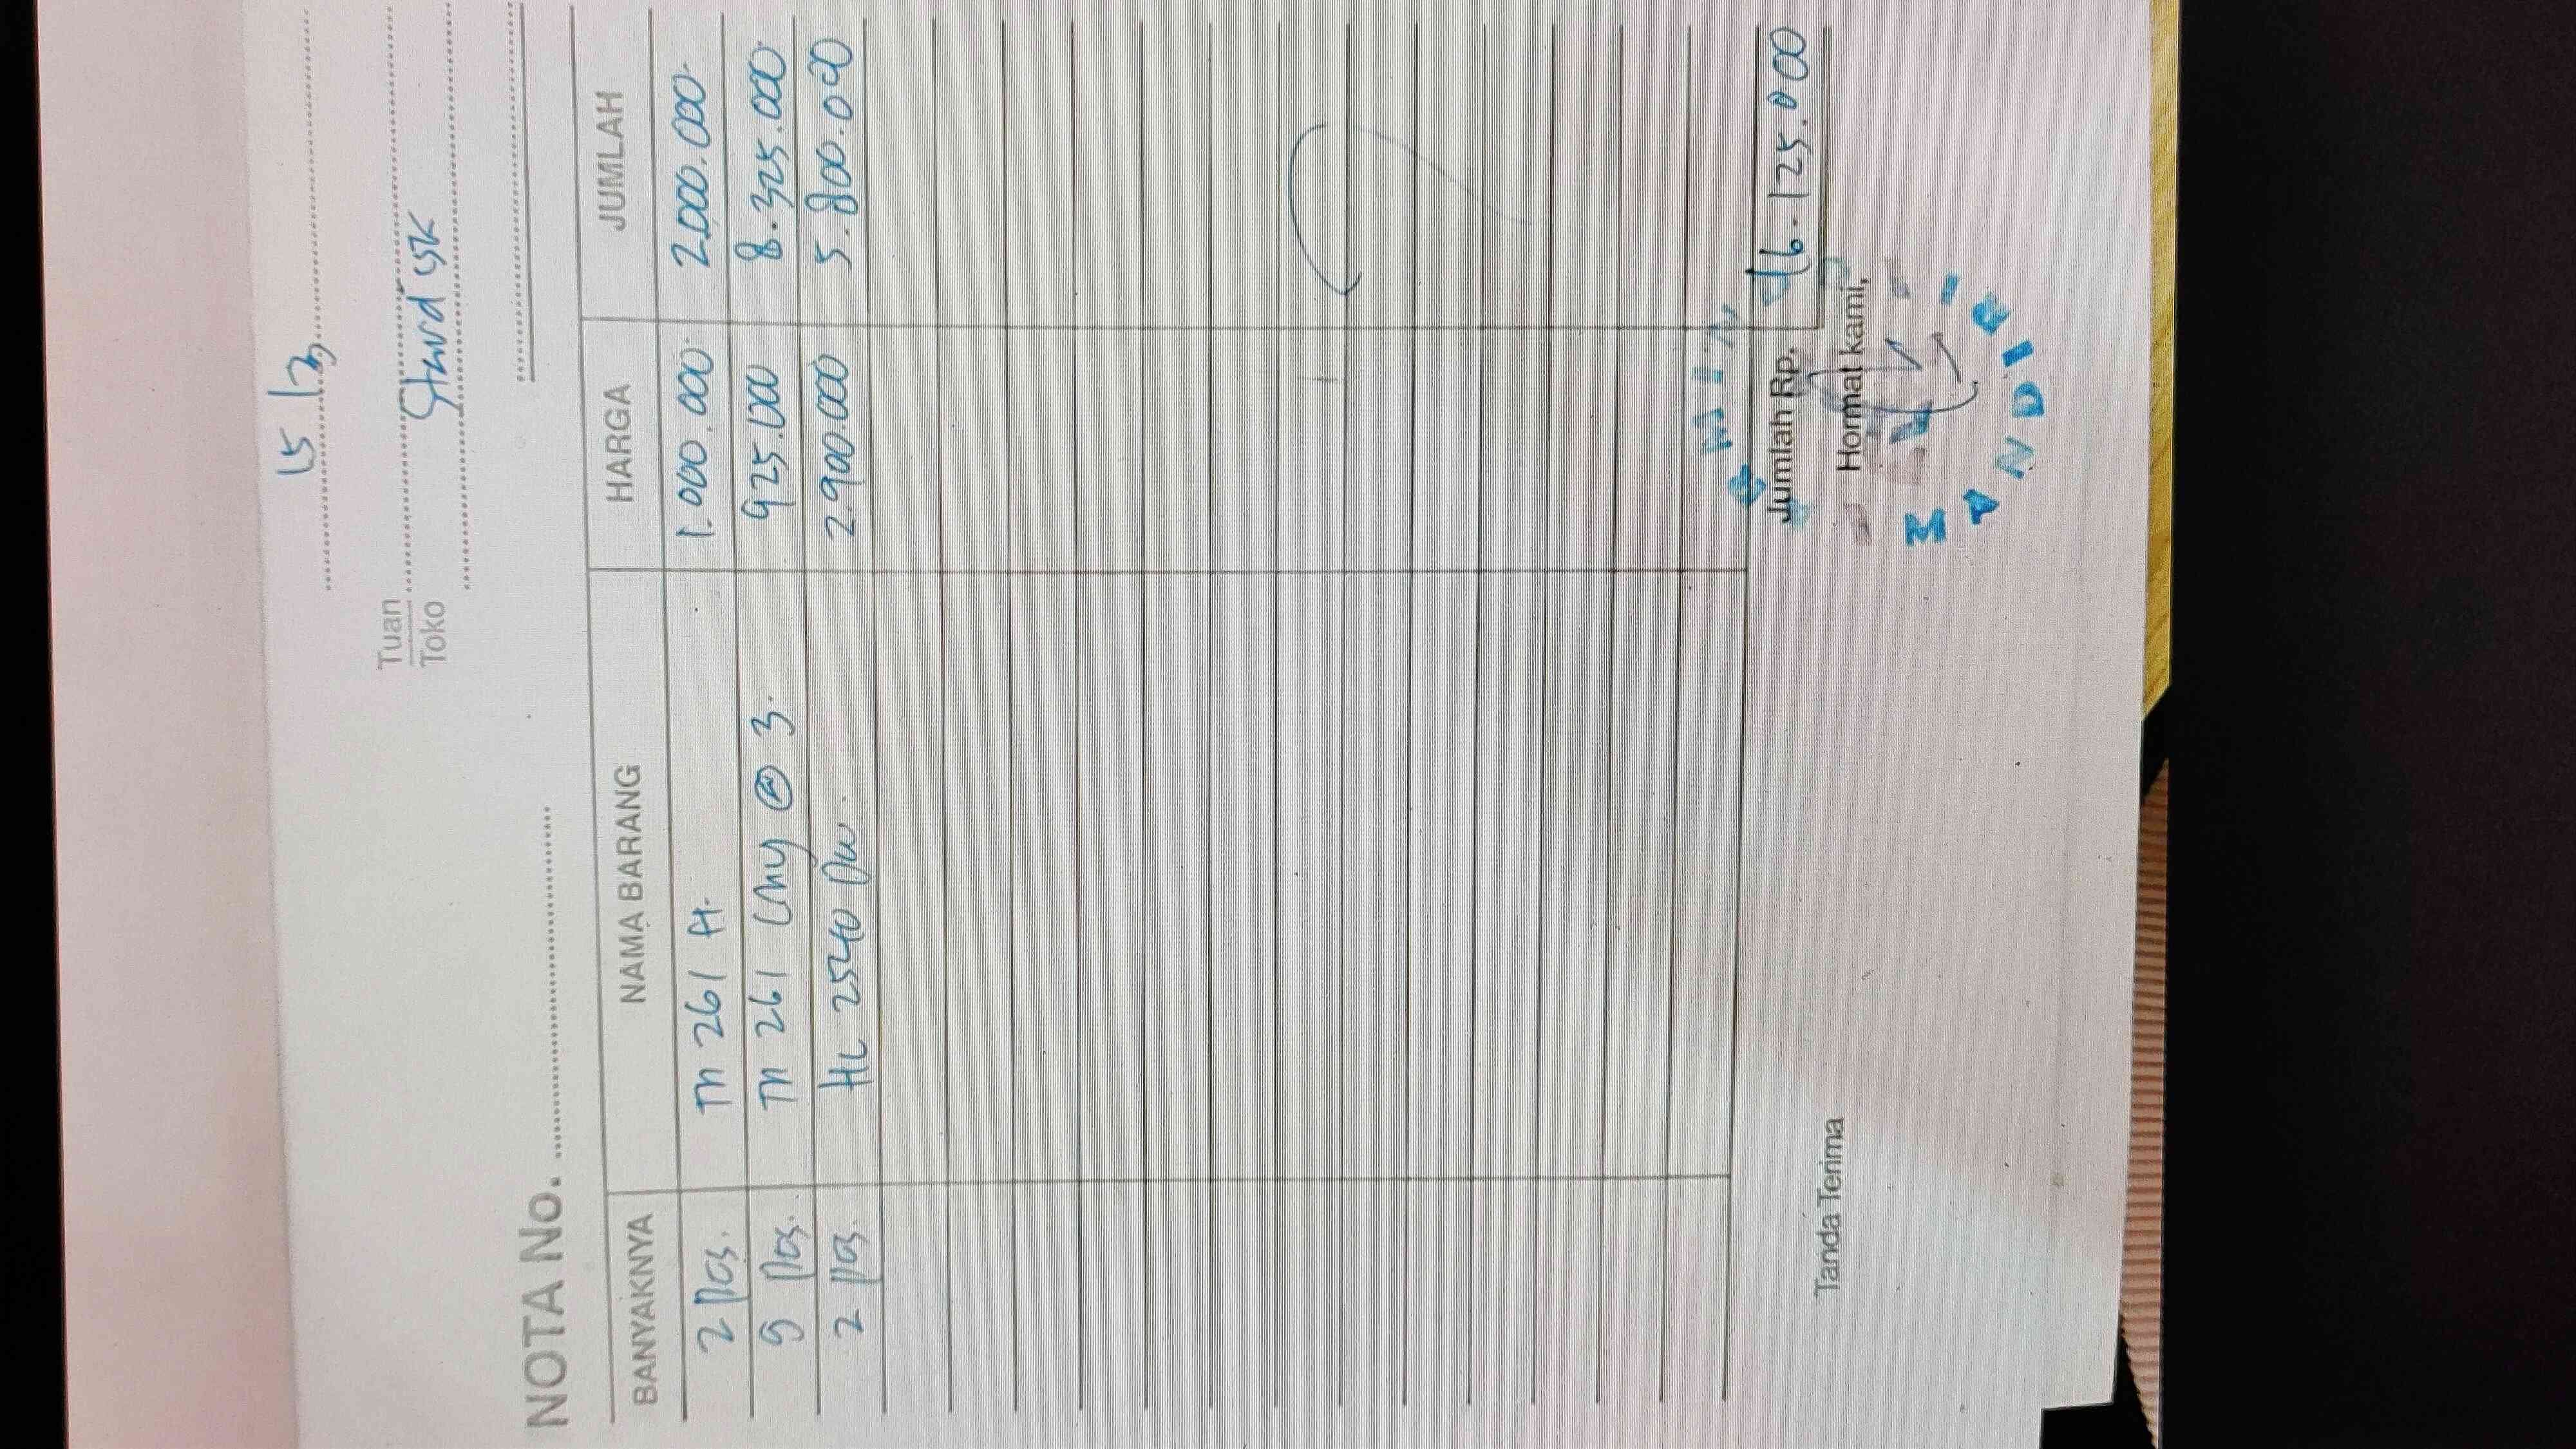 15/3
Tuan
Toko
NOTA No.
BANYAKNYA NAMA BARANG HARGA JUMLAH
2 pcs. TN 261 1.000.000 2.000.000
9 pcs. TN 261 Cmy @ 3. 925.000 8.325.000
2 pcs. HL 2540 Dw. 2.900.000 5.800.000
Jumlah Rp. 16.125.000
Tanda Terima Hormat kami,
MANDIRI